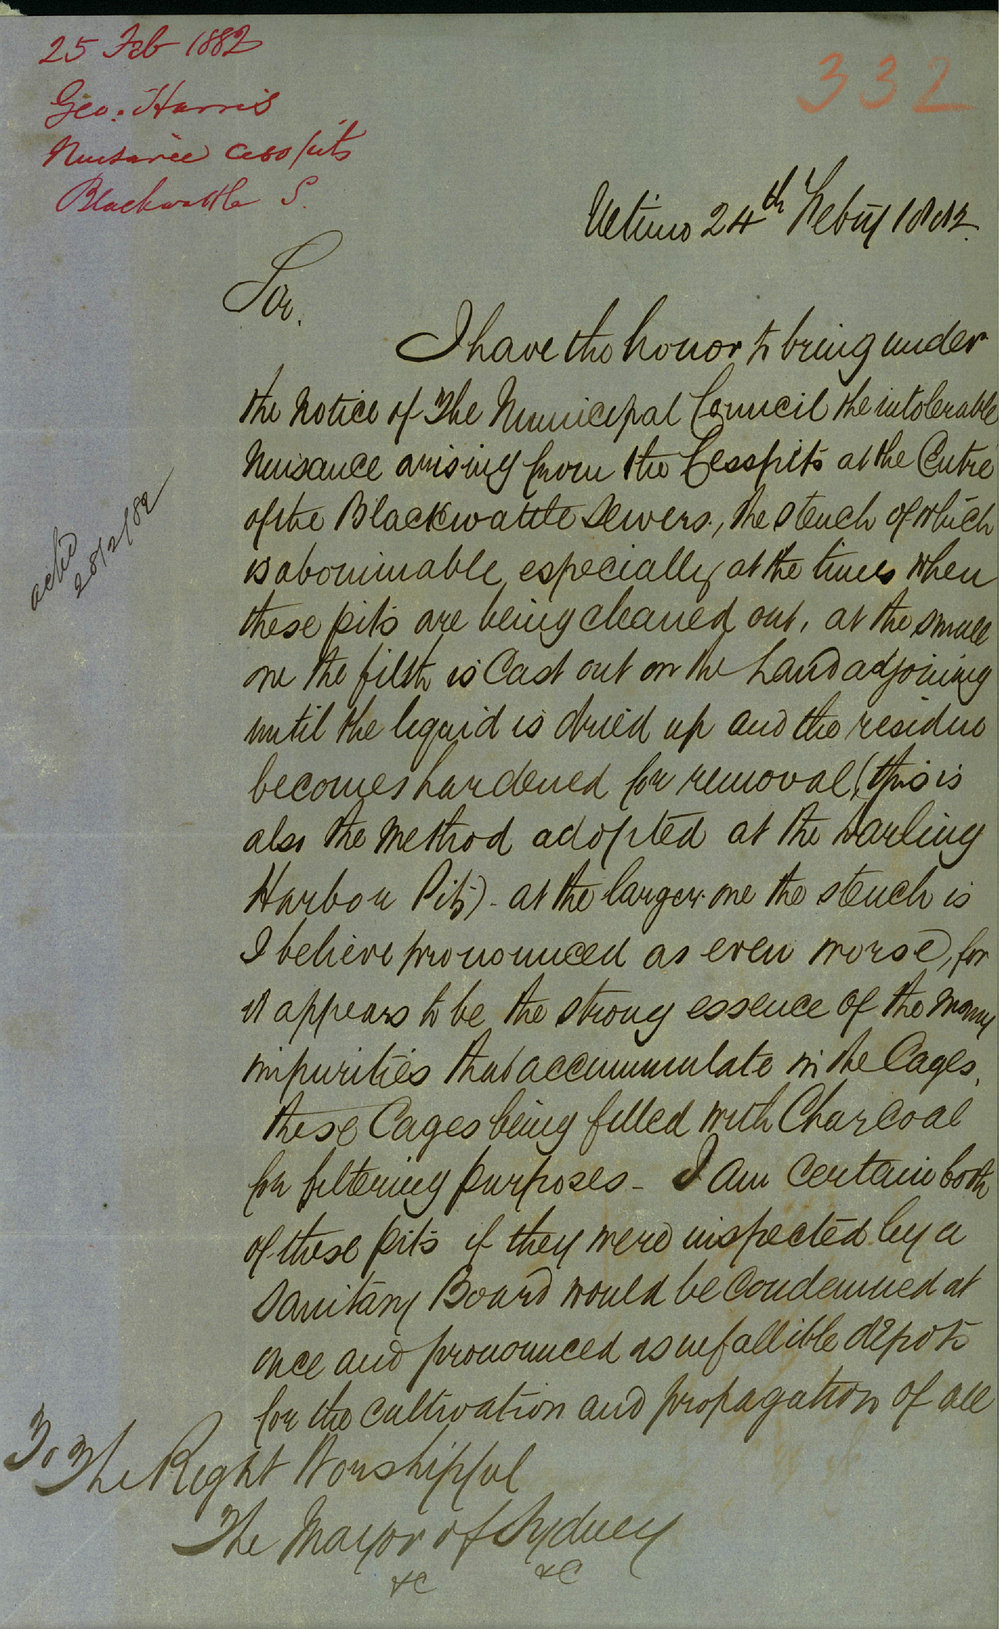 25 Feb 1882
Geo. Harris
Nuisance cesspits
Blackwattle S.
332
Ultimo 24th Feby 1882.
Sir.
I have the honor to bring under
the Notice of The Municipal Council the intolerable
Nuisance arising from the Cesspits at the Entre
of the Blackwattle Sewers, the stench of which
is abominable, especially at the times when
these pits are being cleaned out, at the small
one the filth is Cast out on the Land adjoining
until the liquid is dried up and the residue
becomes hardened for removal (this is
also the Method adopted at the Darling
Harbour Pits) - at the larger one the stench is
I believe pronounced as even worse, for
it appears to be the strong essence of the many
impurities that accummulate in the Cages,
these Cages being filled with Charcoal
for filtering purposes - I am certain both
of these pits if they were inspected by a
Sanitary Board would be Condemned at
once and pronounced as infallible depots
for the cultivation and propagation of all
To The Right Worshipful
The Mayor of Sydney
&C &C
ackd
28/2/82